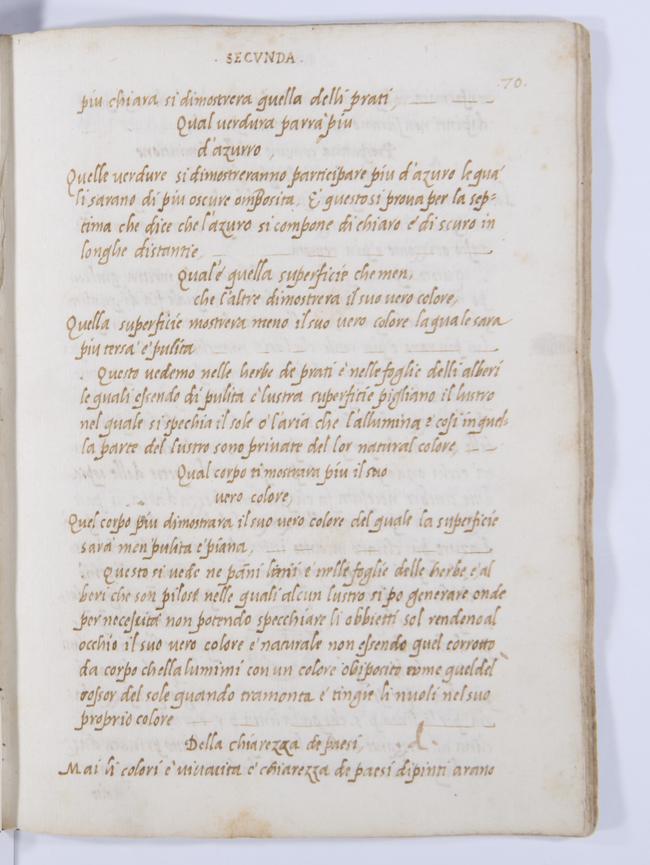 · SECVNDA ·
70.
piu chiara si dimostrera quella delli prati
Qual verdura parra piu
d'azurro,
Quelle verdure si dimostreranno participare piu d'azuro le qua
li sarano di piu oscure E questo si prova per la sep-
tima che dice che l'azuro si compone di chiaro e di scuro in
longhe distantie,
Qual'e quella superficie che men,
che l'altre dimostrera il suo vero colore,
Quella superficie mostrera meno il suo vero colore la quale sara
piu tersa e pulita
Questo vedemo nelle herbe de prati e nelle foglie delli alberi
le quali essendo di pulita e lustra superficie pigliano il lustro
nel quale si spechia il sole o l'aria che l'allumina e cosi in quel-
la parte del lustro sono private del lor natural colore,
Qual corpo ti mostrara piu il suo
vero colore,
Quel corpo piu dimostrara il suo vero colore del quale la superficie
sara men pulita e piana,
Questo si vede ne pani linii e nelle foglie delle herbe e al
beri che son pilose nelle quali alcun lustro si po generare onde
per necessita non potendo specchiare li obbietti sol rendeno al
occhio il suo vero colore e naturale non essendo quel corrotto
da corpo chell'alumini con un colore obiposito come quel del
rossor del sole quando tramonta e tingie li nuoli nel suo
proprio colore
Della chiarezza de paesi,
Mai li colori e vivavita e chiarezza de paesi dipinti arano